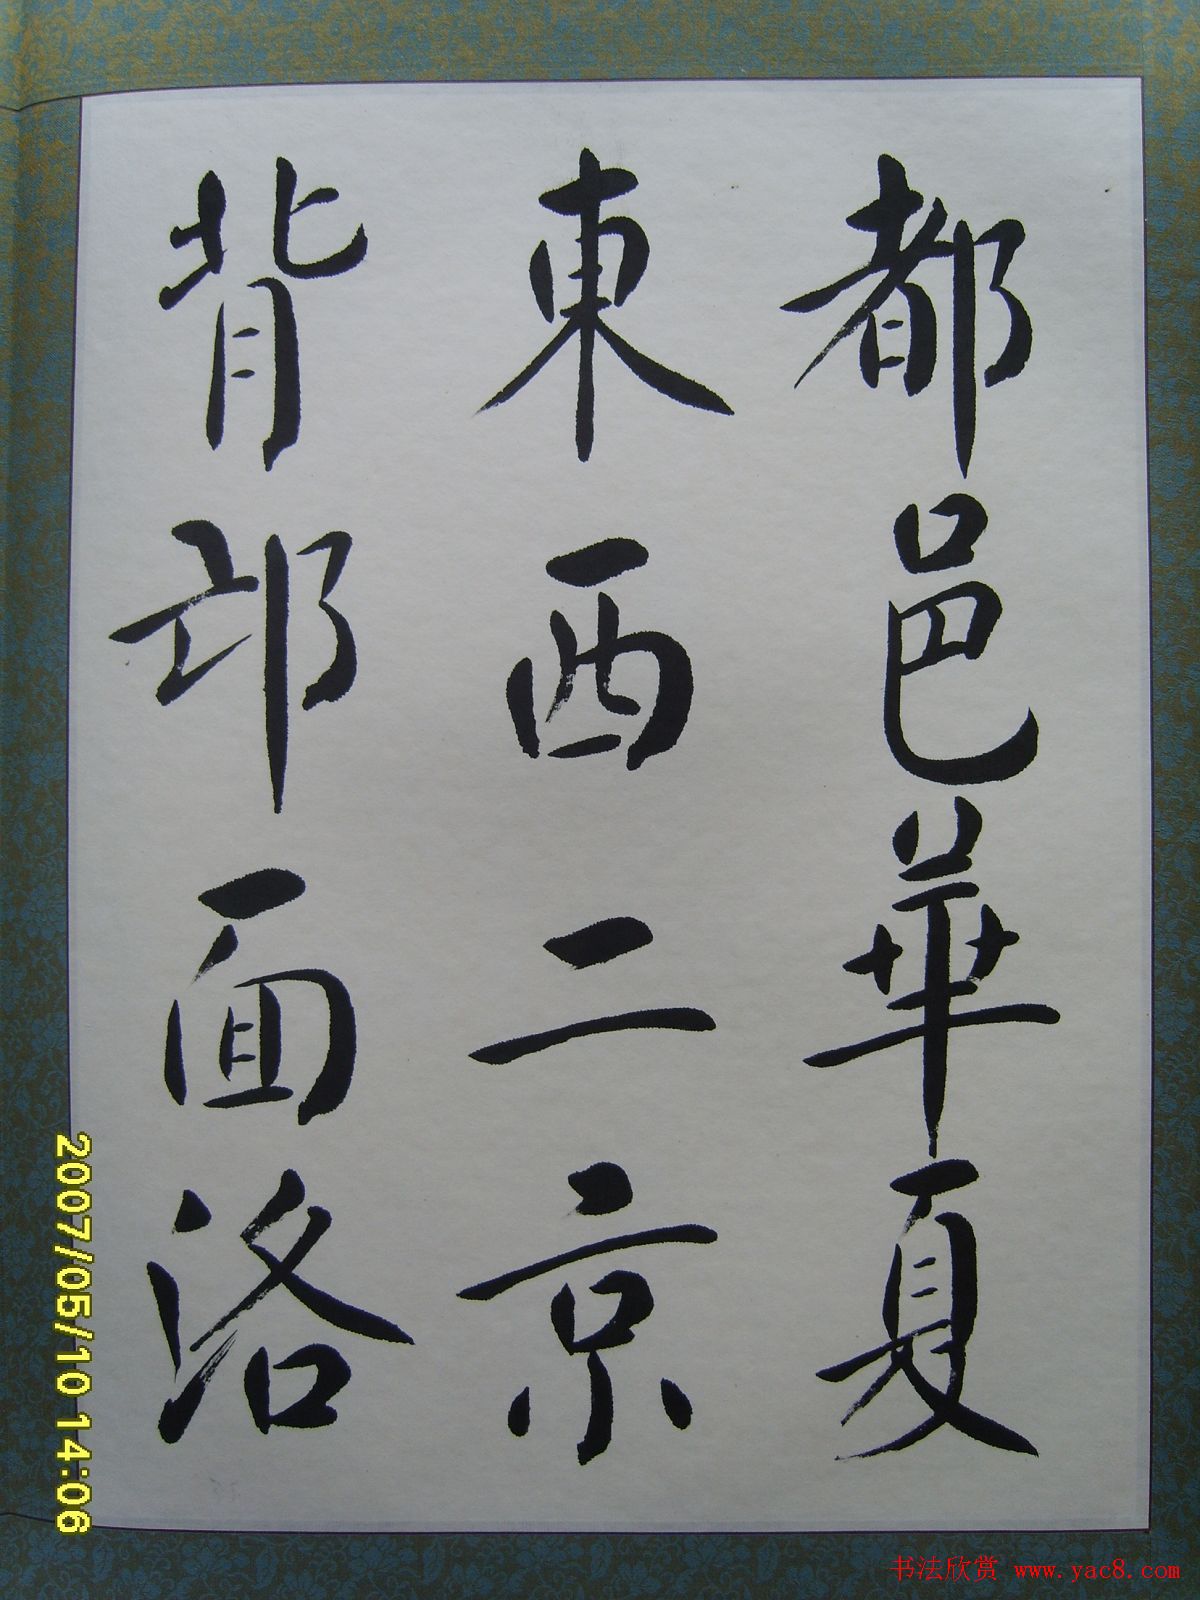 都邑華夏
東西二京
背邙面洛
2007/05/10 14:06
书法欣赏 www.yac8.com